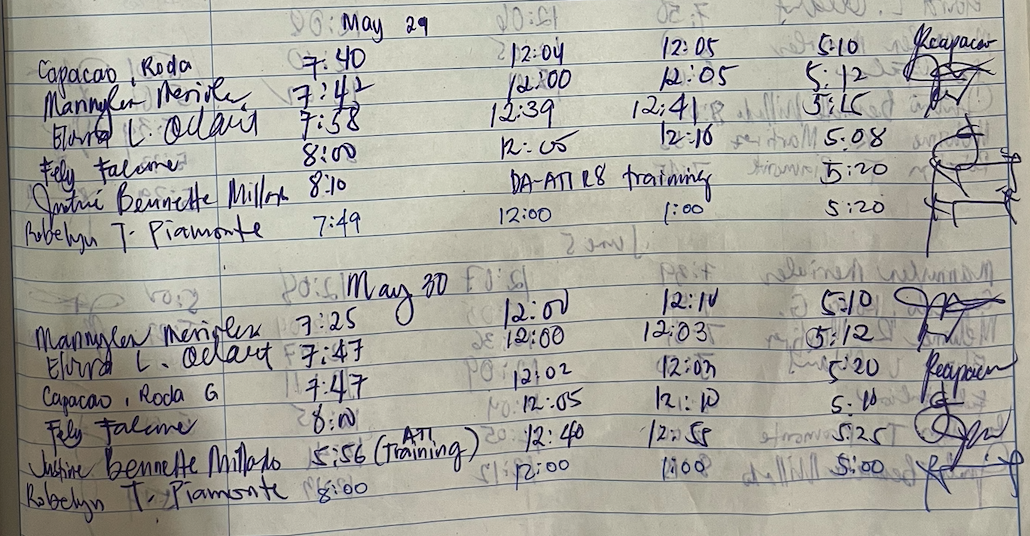 May 29
Capacao, Roda 7:40 12:04 12:05 5:10 Rcapacao
Mannylen Meriolez 7:42 12:00 12:05 5:12
L. Oclarit 7:58 12:39 12:41 5:15
Fely Falame 8:00 12:05 12:16 5:08
Justine Bennette Millado 8:10 DA-ATI R8 training 5:20
Robelyn T. Piamonte 7:49 12:00 1:00 5:20
May 30
Mannylen Meriolez 7:25 12:00 12:10 5:10
L. Oclarit 7:47 12:00 12:03 5:12
Capacao, Roda G 7:47 12:02 12:03 5:20 Rcapacao
Fely Falame 8:00 12:05 12:10 5:10
Justine Bennette Millado 5:56 (ATI Training) 12:40 12:58 5:25
Robelyn T. Piamonte 8:00 12:00 1:00 5:00